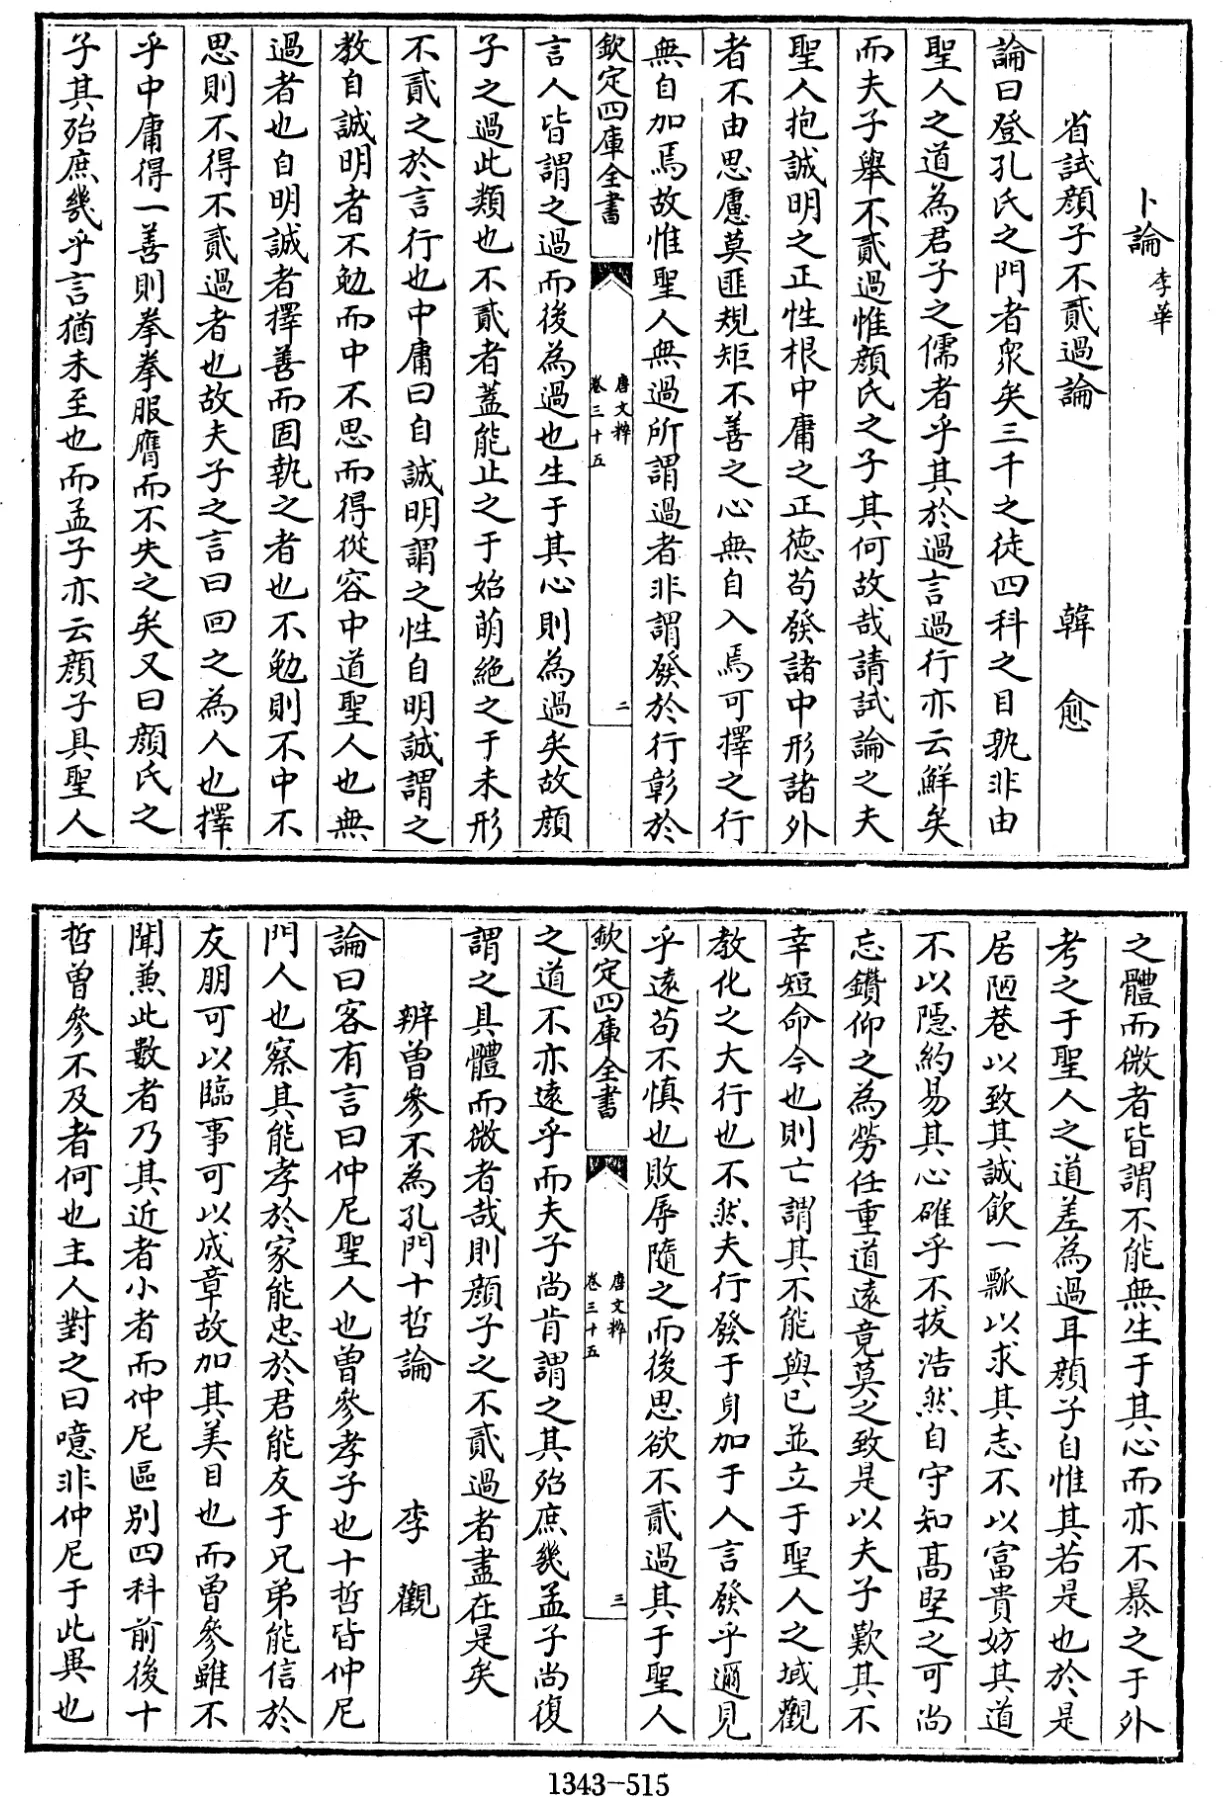 卜論李華
省試顔子不貳過論 韓愈
論曰登孔氏之門者衆矣三千之徒四科之目孰非由
聖人之道為君子之儒者乎其於過言過行亦云鮮矣
而夫子舉不貳過惟顔氏之子其何故哉請試論之夫
聖人抱誠明之正性根中庸之正德茍發諸中形諸外
者不由思慮莫匪規矩不善之心無自入焉可擇之行
無自加焉故惟聖人無過所謂過者非謂發於行彰於
欽定四庫全書
唐文粹
卷三十五
二
言人皆謂之過而後為過也生于其心則為過矣故顔
子之過此類也不貳者蓋能止之于始萌絶之于未形
不貳之於言行也中庸曰自誠明謂之性自明誠謂之
教自誠明者不勉而中不思而得從容中道聖人也無
過者也自明誠者擇善而固執之者也不勉則不中不
思則不得不貳過者也故夫子之言曰回之為人也擇
乎中庸得一善則拳拳服膺而不失之矣又曰顔氏之
子其殆庶幾乎言猶未至也而孟子亦云顔子具聖人
之體而微者皆謂不能無生于其心而亦不暴之于外
考之于聖人之道差為過耳顔子自惟其若是也於是
居陋巷以致其誠飲一瓢以求其志不以富貴妨其道
不以隱約易其心確乎不拔浩然自守知高堅之可尚
忘鑽仰之為勞任重道遠竟莫之致是以夫子歎其不
幸短命今也則亡謂其不能與已並立于聖人之域觀
教化之大行也不然夫行發于身加于人言發乎邇見
乎遠茍不慎也敗辱隨之而後思欲不貳過其于聖人
欽定四庫全書
唐文粹
卷三十五
三
之道不亦遠乎而夫子尚肯謂之其殆庶幾孟子尚復
謂之具體而微者哉則顔子之不貳過者盡在是矣
辨曽參不為孔門十哲論 李觀
論曰客有言曰仲尼聖人也曽參孝子也十哲皆仲尼
門人也察其能孝於家能忠於君能友于兄弟能信於
友朋可以臨事可以成章故加其美目也而曽參雖不
聞兼此數者乃其近者小者而仲尼區别四科前後十
哲曽參不及者何也主人對之曰噫非仲尼于此異也
1343-515